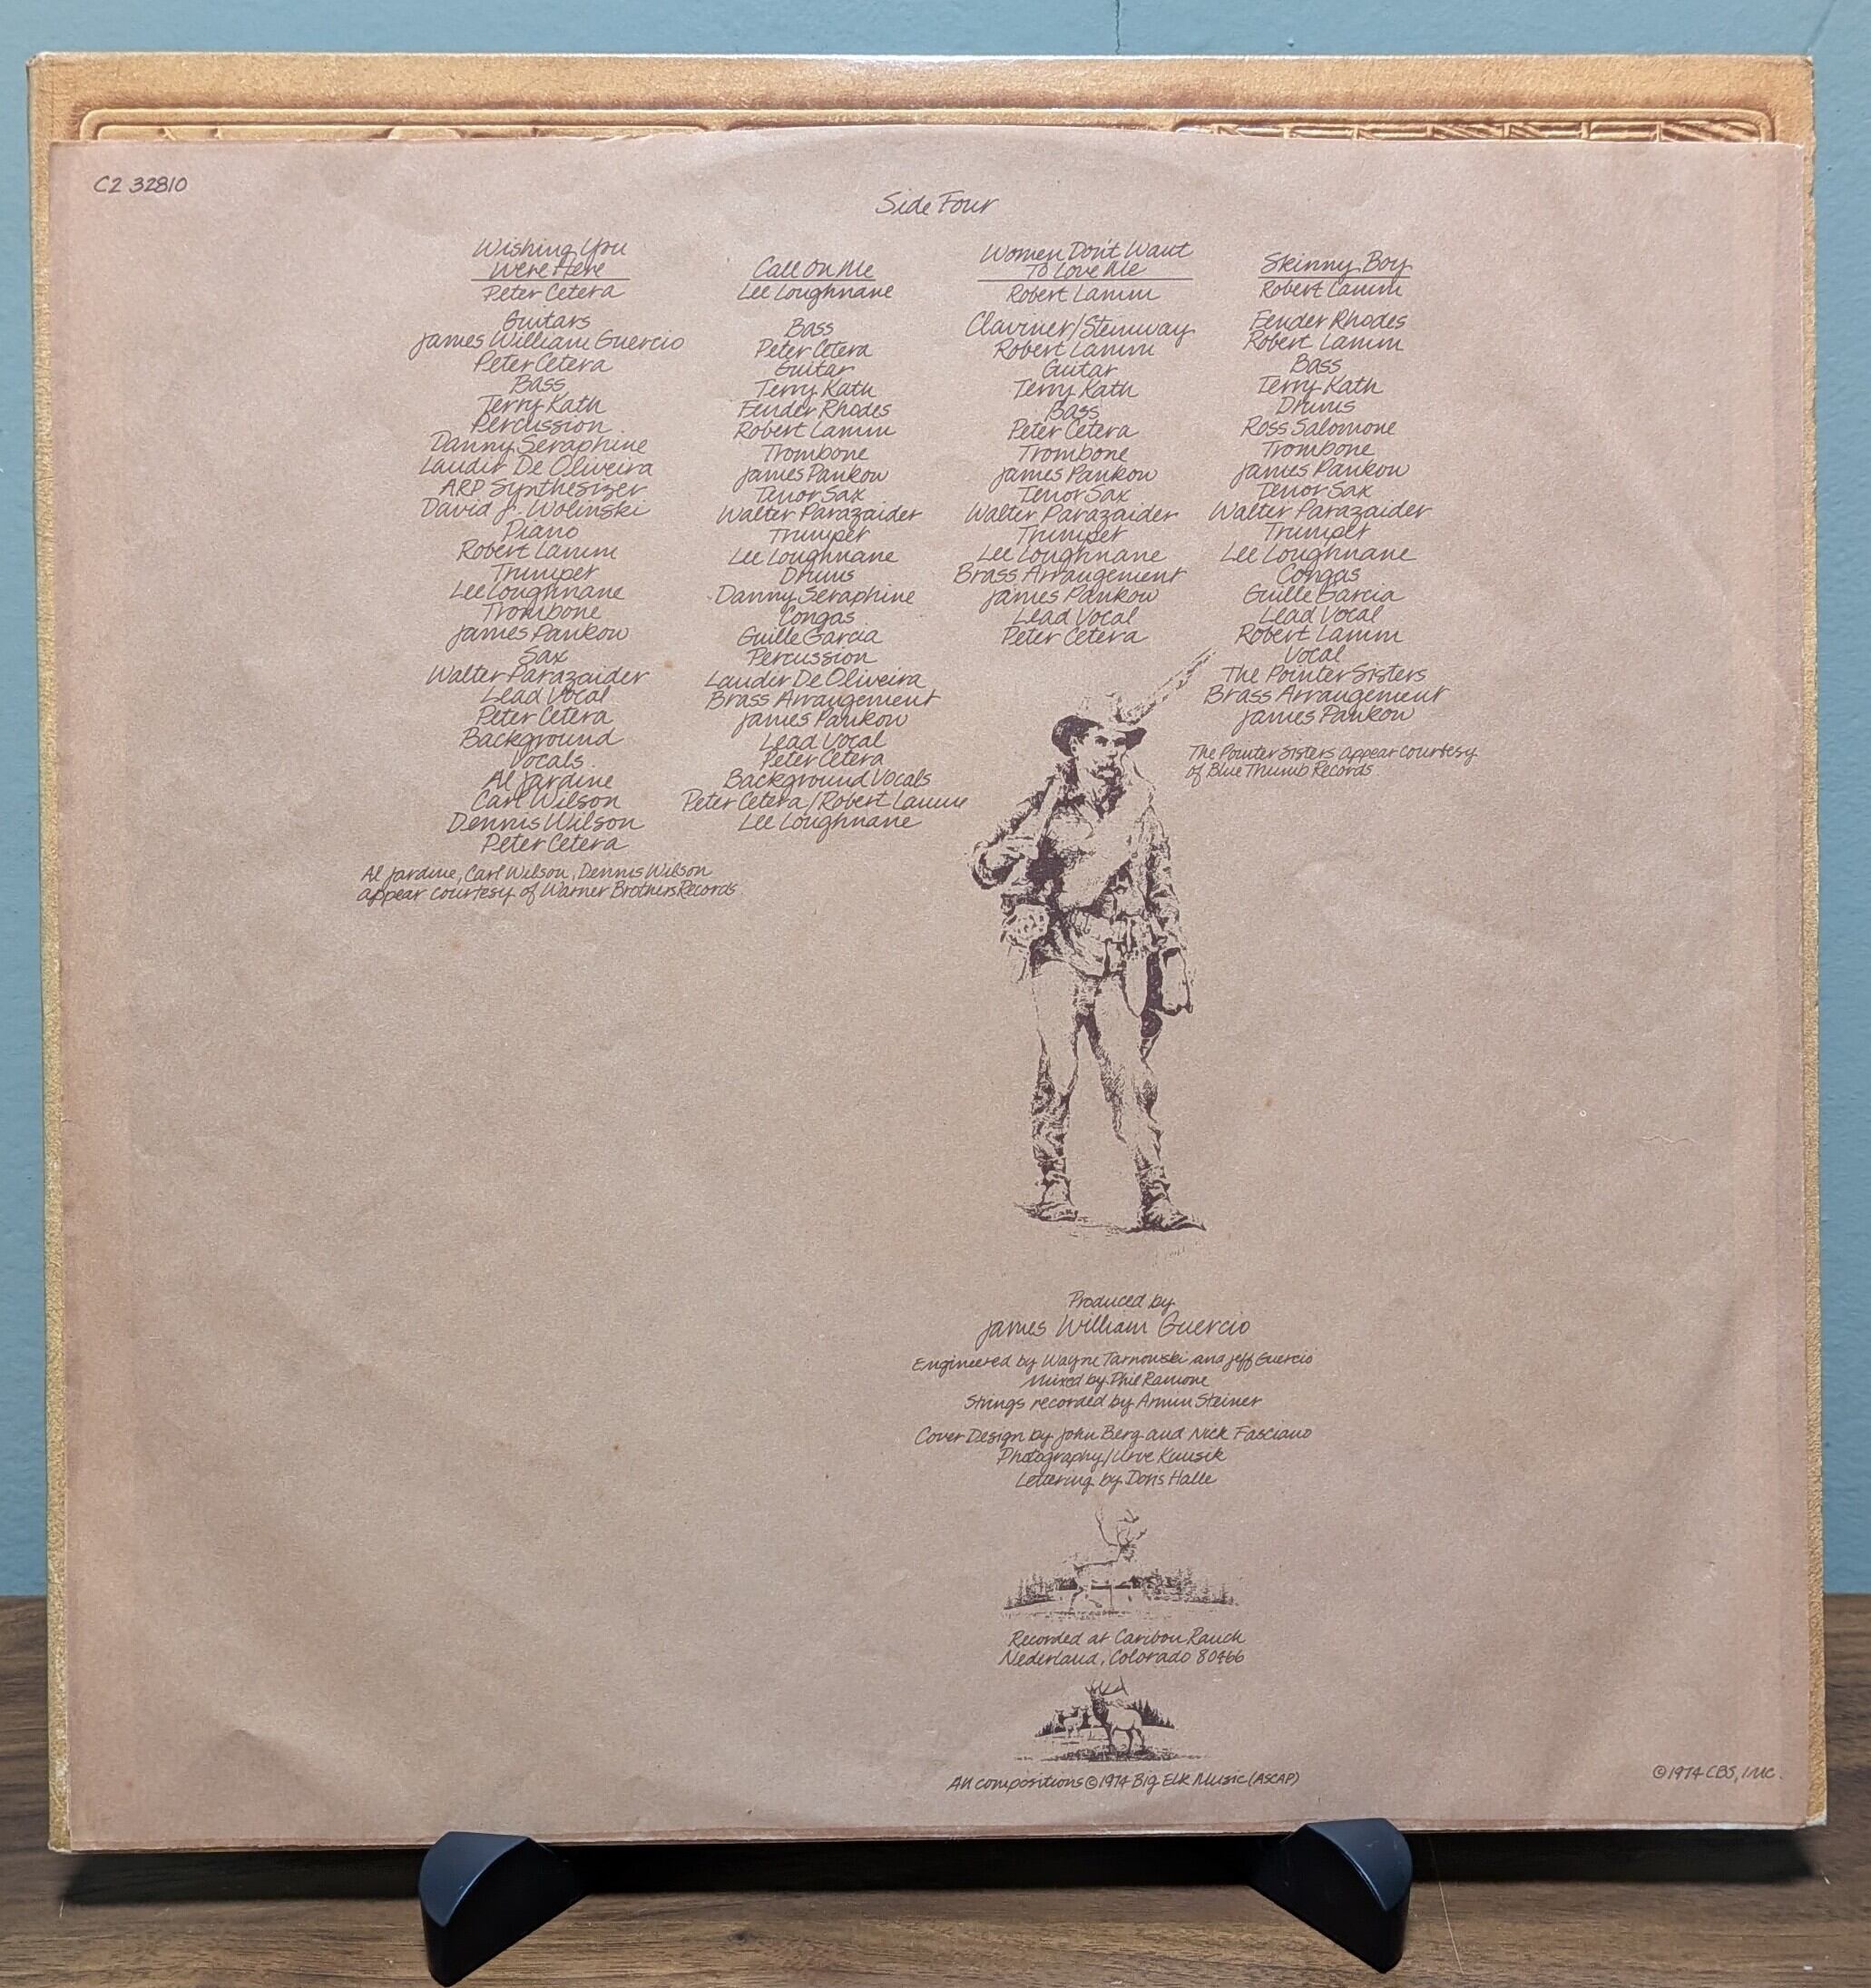 C2 32810
Side Four
Wishing You
Were Here
Peter Cetera
Guitars
James William Guercio
Peter Cetera
Bass
Terry Kath
Percussion
Danny Seraphine
Laudir De Oliveira
ARP Synthesizer
David J. Wolinski
Piano
Robert Lamm
Trumpet
Lee Loughnane
Trombone
James Pankow
Sax
Walter Parazaider
Lead Vocal
Peter Cetera
Background
Vocals
Al Jardine
Carl Wilson
Dennis Wilson
Peter Cetera
Al Jardine, Carl Wilson, Dennis Wilson
appear courtesy of Warner Brothers Records
Call On Me
Lee Loughnane
Bass
Peter Cetera
Guitar
Terry Kath
Fender Rhodes
Robert Lamm
Trombone
James Pankow
Tenor Sax
Walter Parazaider
Trumpet
Lee Loughnane
Drums
Danny Seraphine
Congas
Guille Garcia
Percussion
Laudir De Oliveira
Brass Arrangement
James Pankow
Lead Vocal
Peter Cetera
Background Vocals
Peter Cetera/Robert Lamm
Lee Loughnane
Women Don't Want
To Love Me
Robert Lamm
Clavinet/Steinway
Robert Lamm
Guitar
Terry Kath
Bass
Peter Cetera
Trombone
James Pankow
Tenor Sax
Walter Parazaider
Trumpet
Lee Loughnane
Brass Arrangement
James Pankow
Lead Vocal
Peter Cetera
Skinny Boy
Robert Lamm
Fender Rhodes
Robert Lamm
Bass
Terry Kath
Drums
Ross Salomone
Trombone
James Pankow
Tenor Sax
Walter Parazaider
Trumpet
Lee Loughnane
Congas
Guille Garcia
Lead Vocal
Robert Lamm
Vocal
The Pointer Sisters
Brass Arrangement
James Pankow
The Pointer Sisters appear courtesy
of Blue Thumb Records
Produced by
James William Guercio
Engineered by Wayne Tarnowski and Jeff Guercio
Mixed by Phil Ramone
Strings recorded by Armin Steiner
Cover Design by John Berg and Nick Fasciano
Photography/Urve Kuusik
Lettering by Doris Halle
Recorded at Caribou Ranch
Nederland, Colorado 80466
All compositions © 1974 Big Elk Music (ASCAP)
© 1974 CBS, Inc.